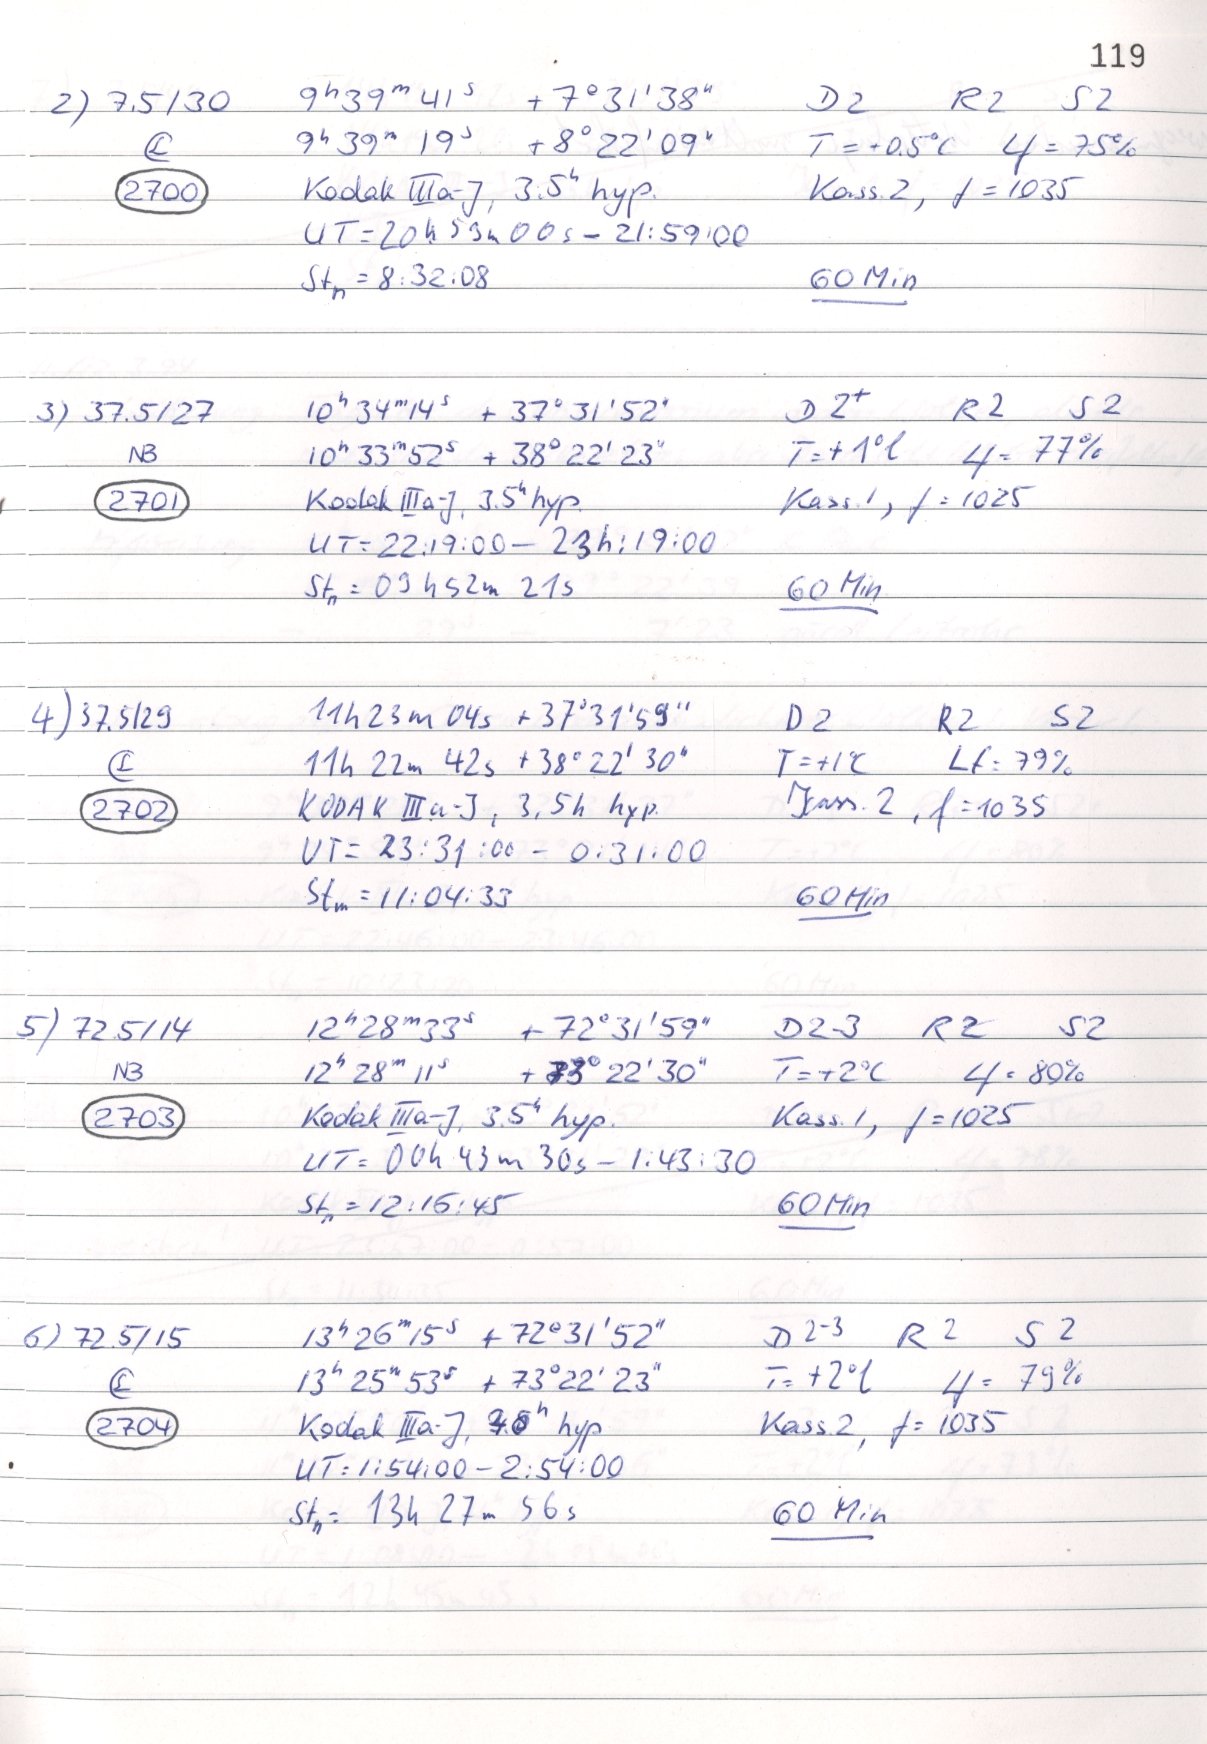 119
2) 7.5/30 9ʰ39ᵐ41ˢ +7°31'38" D2 R2 S2
9ʰ39ᵐ19ˢ +8°22'09" T=+0.5°C Lf=75%
2700 Kodak IIIa-J, 3.5ʰ hyp. Kass.2, f=1035
UT=20h59m00s – 21:59:00
Stₙ=8:32:08 60 Min
3) 37.5/27 10ʰ34ᵐ14ˢ +37°31'52" D2⁺ R2 S2
NB 10ʰ33ᵐ52ˢ +38°22'23" T=+1°C Lf=77%
2701 Kodak IIIa-J, 3.5ʰ hyp. Kass.1, f=1025
UT=22:19:00 – 23h:19:00
Stₙ=09h52m 21s 60 Min
4) 37.5/29 11h23m04s +37°31'59" D2 R2 S2
11h 22m 42s +38°22'30" T=+1°C Lf=79%
2702 KODAK IIIa-J, 3,5h hyp. Kass. 2, f=1035
UT= 23:31:00 – 0:31:00
Stₘ=11:04:33 60 Min
5) 72.5/14 12ʰ28ᵐ33ˢ +72°31'59" D2-3 R2 S2
NB 12ʰ28ᵐ11ˢ +73°22'30" T=+2°C Lf=80%
2703 Kodak IIIa-J, 3.5ʰ hyp. Kass.1, f=1025
UT= 00h 43m 30s – 1:43:30
Stₙ=12:16:45 60 Min
6) 72.5/15 13ʰ26ᵐ15ˢ +72°31'52" D2-3 R2 S2
13ʰ25ᵐ53ˢ +73°22'23" T=+2°C Lf=79%
2704 Kodak IIIa-J, hyp Kass.2, f=1035
UT=1:54:00 – 2:54:00
Stₙ= 13h 27m 56s 60 Min